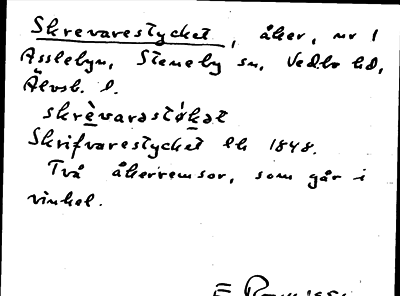 Skrevarestycket, åker, nr 1
Asslebyn, Steneby sn, Vedbo hd,
Älvsb. l.
skrèvarəstýkət
Skrifvarestycket lh 1848.
Två åkerremsor, som går i
vinkel.
E